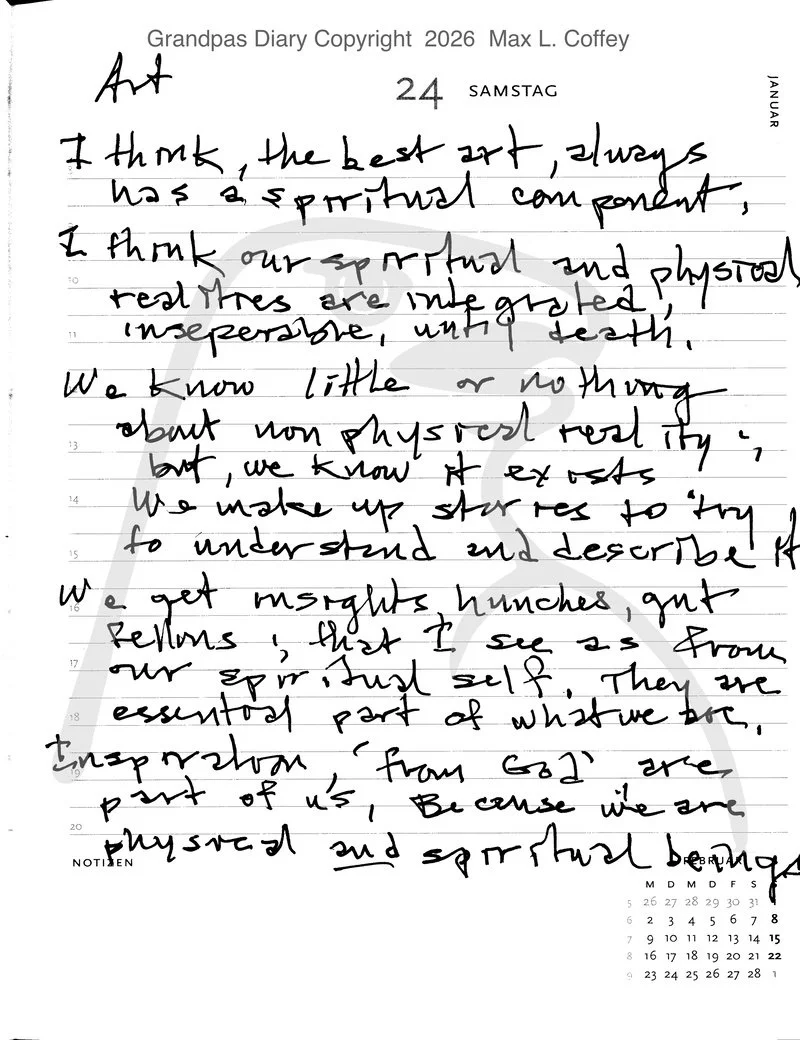 Grandpas Diary Copyright 2026 Max L. Coffey
Art
24 SAMSTAG
JANUAR
I think, the best art, always
has a spiritual component,
I think our spiritual and physical
10
realities are integrated,
11
inseperable, until death.
We know little or nothing
about non physical reality;
13
but, we know it exists
14
We make up stories to try
to understand and describe it
15
We get insights, hunches, gut
16
fellons, that I see as from
17
our spiritual self. They are
18
essential part of what we are.
Inspiration, "from God" are
19
part of us, Because we are
20
physical and spiritual beings
NOTIZEN
FEBRUAR
M D M D F S S
5 26 27 28 29 30 31 1
6 2 3 4 5 6 7 8
7 9 10 11 12 13 14 15
8 16 17 18 19 20 21 22
9 23 24 25 26 27 28 1